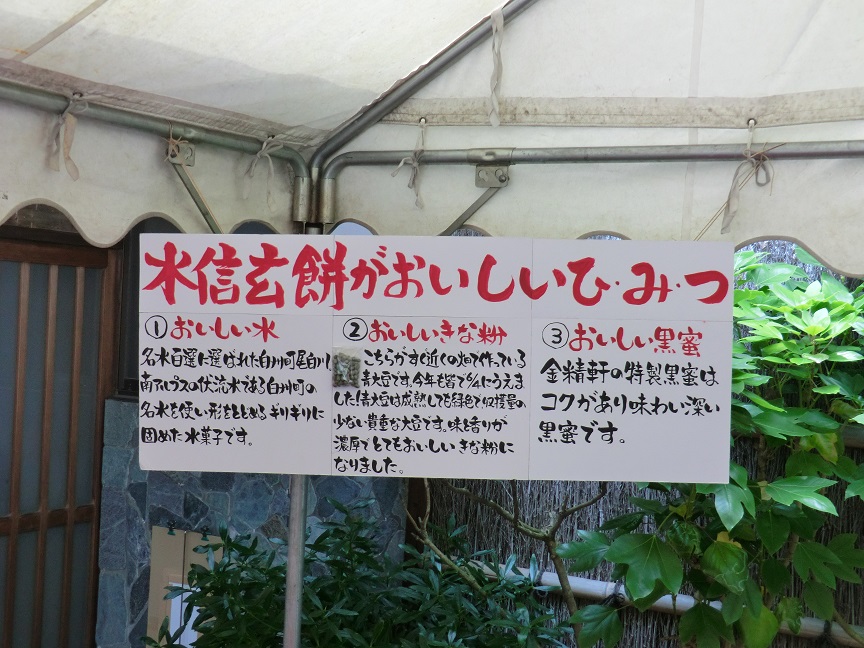 水信玄餅がおいしいひ・み・つ
①おいしい水
名水百選に選ばれた白州町尾白川
南アルプスの伏流水である白州町の
名水を使い形をとどめるギリギリに
固めた水菓子です。
②おいしいきな粉
こちらがすぐ近くの畑で作っている
青大豆です。今年も皆で%にうえま
した青大豆は成熟しても緑色で収穫量の
少ない貴重な大豆です。味と香りが
濃厚でとてもおいしいきな粉に
なりました。
③おいしい黒蜜
金精軒の特製黒蜜は
コクがあり味わい深い
黒蜜です。